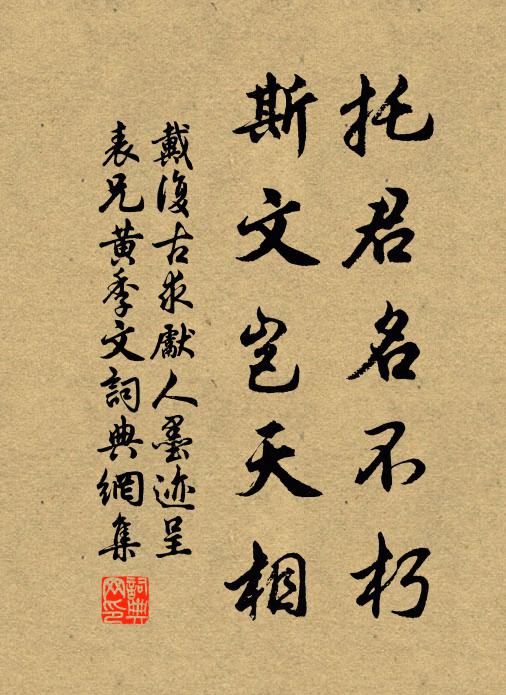 托君名不朽
斯文豈天相
戴復古求獻人墨迹呈
表兄黃季文詞典網集
詞典网印